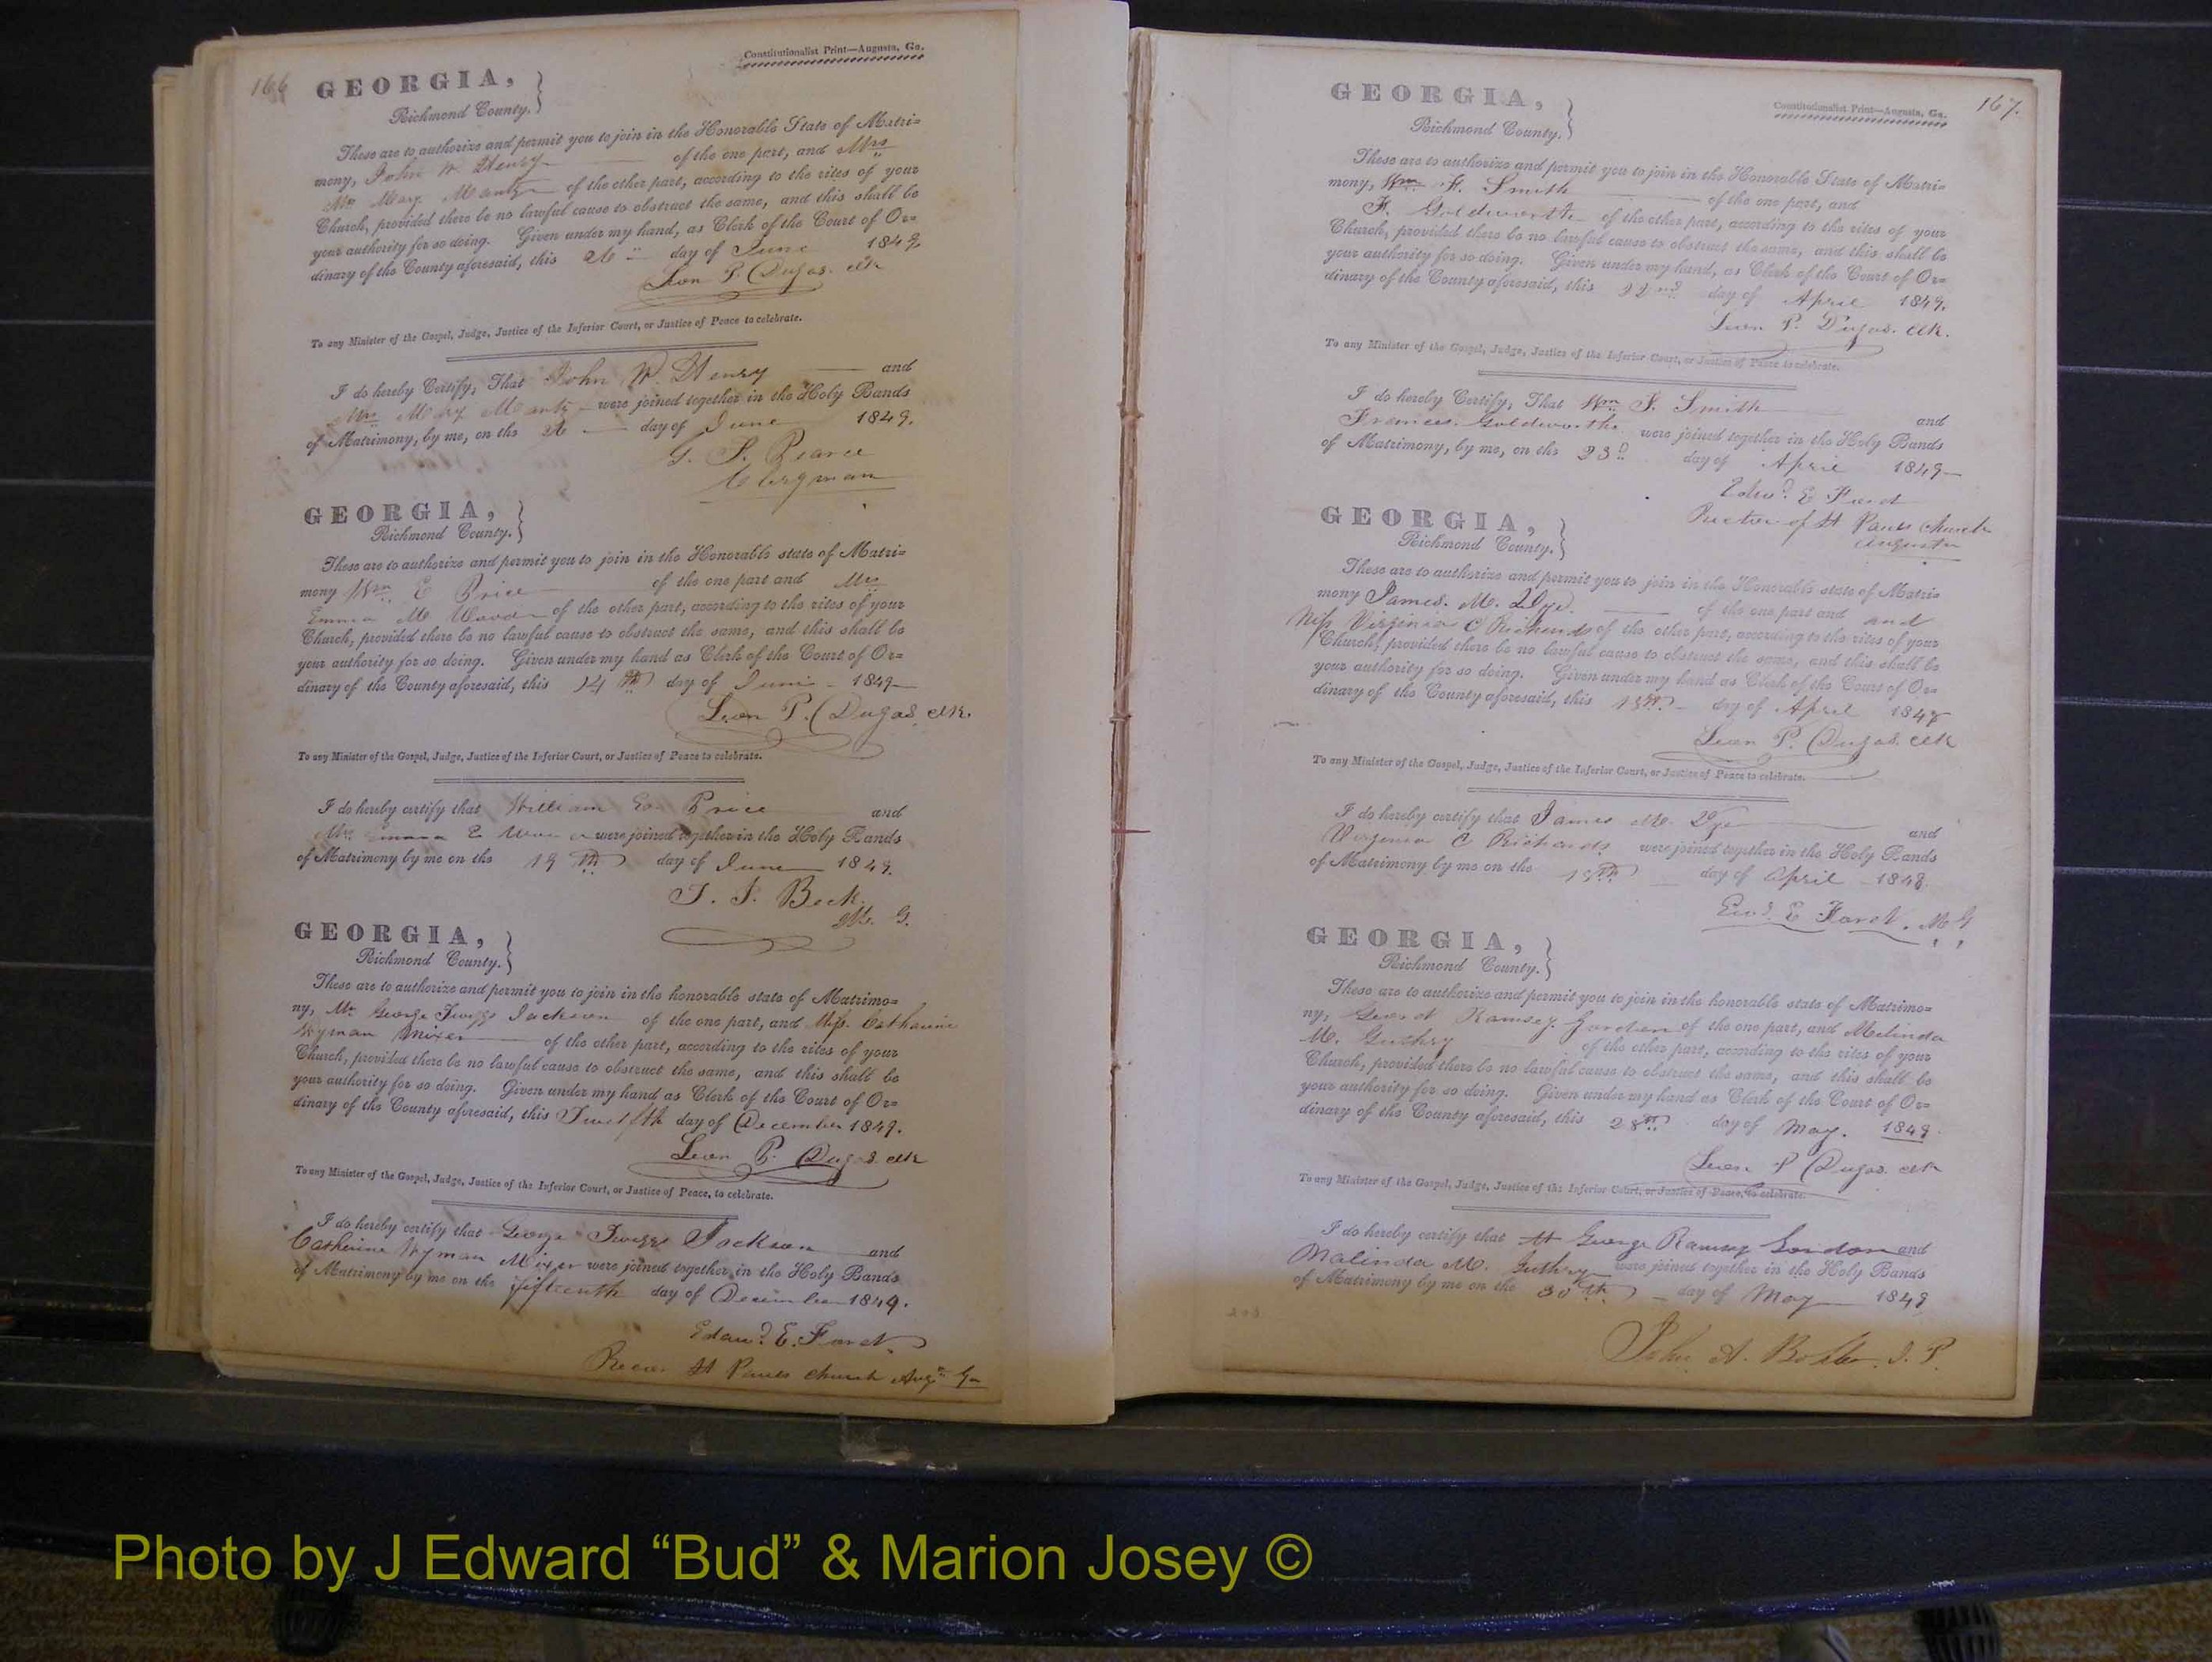 166
Constitutionalist Print—Augusta, Ga.
GEORGIA,
Richmond County.
These are to authorize and permit you to join in the Honorable State of Matri=
mony, John W. Henry of the one part, and Mrs
Mary Mantz of the other part, according to the rites of your
Church, provided there be no lawful cause to obstruct the same, and this shall be
your authority for so doing. Given under my hand, as Clerk of the Court of Or=
dinary of the County aforesaid, this day of June 1849
Leon P. Dugas. clk
To any Minister of the Gospel, Judge, Justice of the Inferior Court, or Justice of Peace to celebrate.
I do hereby Certify, That John W. Henry and
Mrs Mary Mantz were joined together in the Holy Bands
of Matrimony, by me, on the day of June 1849.
G. F. Pearce
Clergman
GEORGIA,
Richmond County.
These are to authorize and permit you to join in the Honorable state of Matri=
mony Wm E Price of the one part and Mrs
Emma of the other part, according to the rites of your
Church, provided there be no lawful cause to obstruct the same, and this shall be
your authority for so doing. Given under my hand as Clerk of the Court of Or=
dinary of the County aforesaid, this 14th day of June 1849
Leon P. Dugas, clk.
To any Minister of the Gospel, Judge, Justice of the Inferior Court, or Justice of Peace to celebrate.
I do hereby certify that William Price and
Mrs Emma E were joined together in the Holy Bands
of Matrimony by me on the 19th day of June 1849.
Beck.
M. G.
GEORGIA,
Richmond County.
These are to authorize and permit you to join in the honorable state of Matrimo=
ny, Mr George Twiggs Jackson of the one part, and Miss. Catharine
Wyman Mixer of the other part, according to the rites of your
Church, provided there be no lawful cause to obstruct the same, and this shall be
your authority for so doing. Given under my hand as Clerk of the Court of Or=
dinary of the County aforesaid, this Twelfth day of December 1849.
Leon P. Dugas. clk
To any Minister of the Gospel, Judge, Justice of the Inferior Court, or Justice of Peace, to celebrate.
I do hereby certify that George Twiggs Jackson and
Catharine Wyman Mixer were joined together in the Holy Bands
of Matrimony by me on the fifteenth day of December 1849.
Edwd. E. Ford.
St Pauls Church Augta Ga
167.
Constitutionalist Print—Augusta, Ga.
GEORGIA,
Richmond County.
These are to authorize and permit you to join in the Honorable State of Matri=
mony, Wm F. Smith of the one part, and
F. Goldsworthe of the other part, according to the rites of your
Church, provided there be no lawful cause to obstruct the same, and this shall be
your authority for so doing. Given under my hand, as Clerk of the Court of Or=
dinary of the County aforesaid, this 22nd day of April 1849.
Leon P. Dugas. clk.
To any Minister of the Gospel, Judge, Justice of the Inferior Court, or Justice of Peace to celebrate.
I do hereby Certify, That Wm F. Smith and
Frances Goldsworthe were joined together in the Holy Bands
of Matrimony, by me, on the 23d day of April 1849
Edwd. E Ford
Rector of St Pauls church
Augusta
GEORGIA,
Richmond County.
These are to authorize and permit you to join in the Honorable state of Matri=
mony James. M. Dye. of the one part and and
Miss Virginia C Richards of the other part, according to the rites of your
Church, provided there be no lawful cause to obstruct the same, and this shall be
your authority for so doing. Given under my hand as Clerk of the Court of Or=
dinary of the County aforesaid, this day of April
Leon P. Dugas. clk
To any Minister of the Gospel, Judge, Justice of the Inferior Court, or Justice of Peace to celebrate.
I do hereby certify that James M. Dye and
Virginia C Richards were joined together in the Holy Bands
of Matrimony by me on the day of April
Edwd. E Ford. M. G
GEORGIA,
Richmond County.
These are to authorize and permit you to join in the honorable state of Matrimo=
ny, Ramsey Gordon of the one part, and Melinda
M. Guthry of the other part, according to the rites of your
Church, provided there be no lawful cause to obstruct the same, and this shall be
your authority for so doing. Given under my hand as Clerk of the Court of Or=
dinary of the County aforesaid, this 28th day of May. 1849
Leon P Dugas. clk
To any Minister of the Gospel, Judge, Justice of the Inferior Court, or Justice of Peace, to celebrate.
I do hereby certify that George Ramsey Gordon and
Malinda M. Guthry were joined together in the Holy Bands
of Matrimony by me on the 30th day of May 1849
John A. J. P.
Photo by J Edward “Bud” & Marion Josey ©